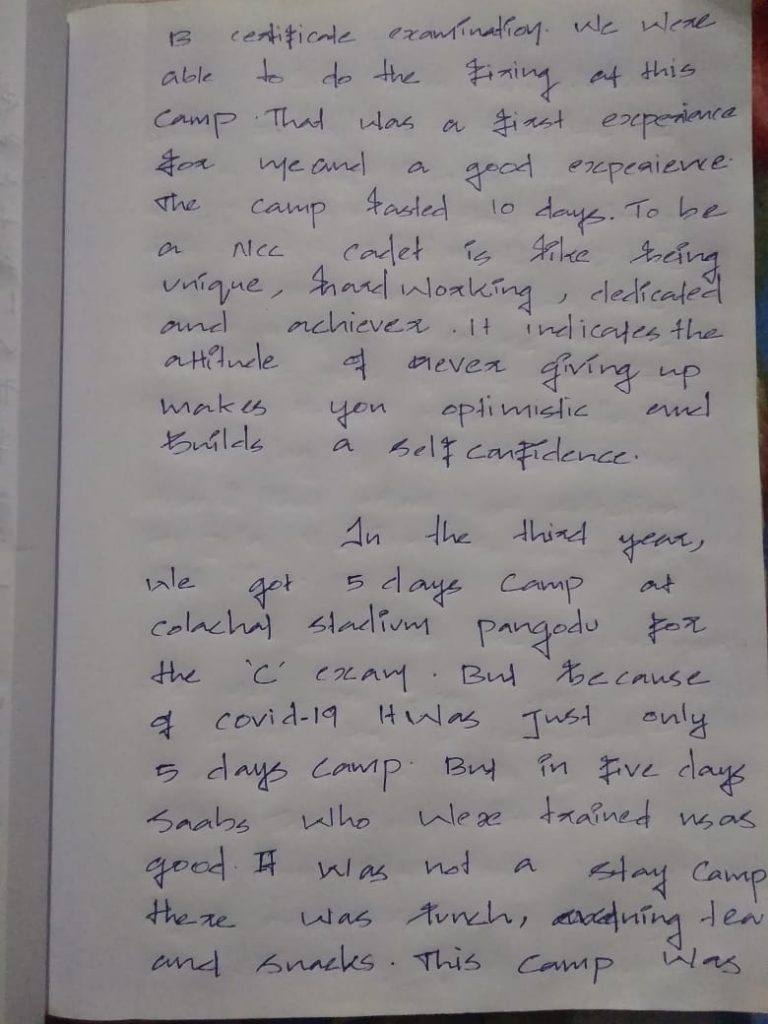 B certificate examination. We were
able to do the firing at this
camp. That was a first experience
for me and a good experience.
The camp lasted 10 days. To be
a NCC cadet is like being
unique, hard working, dedicated
and achiever. It indicates the
attitude of never giving up
makes you optimistic and
builds a self confidence.
In the third year,
We got 5 days camp at
colachal stadium pangodu for
the 'C' exam. But because
of covid-19 It was just only
5 days camp. But in five days
Saabs who were trained us as
good. It was not a stay camp
there was lunch, tea
and snacks. This camp was